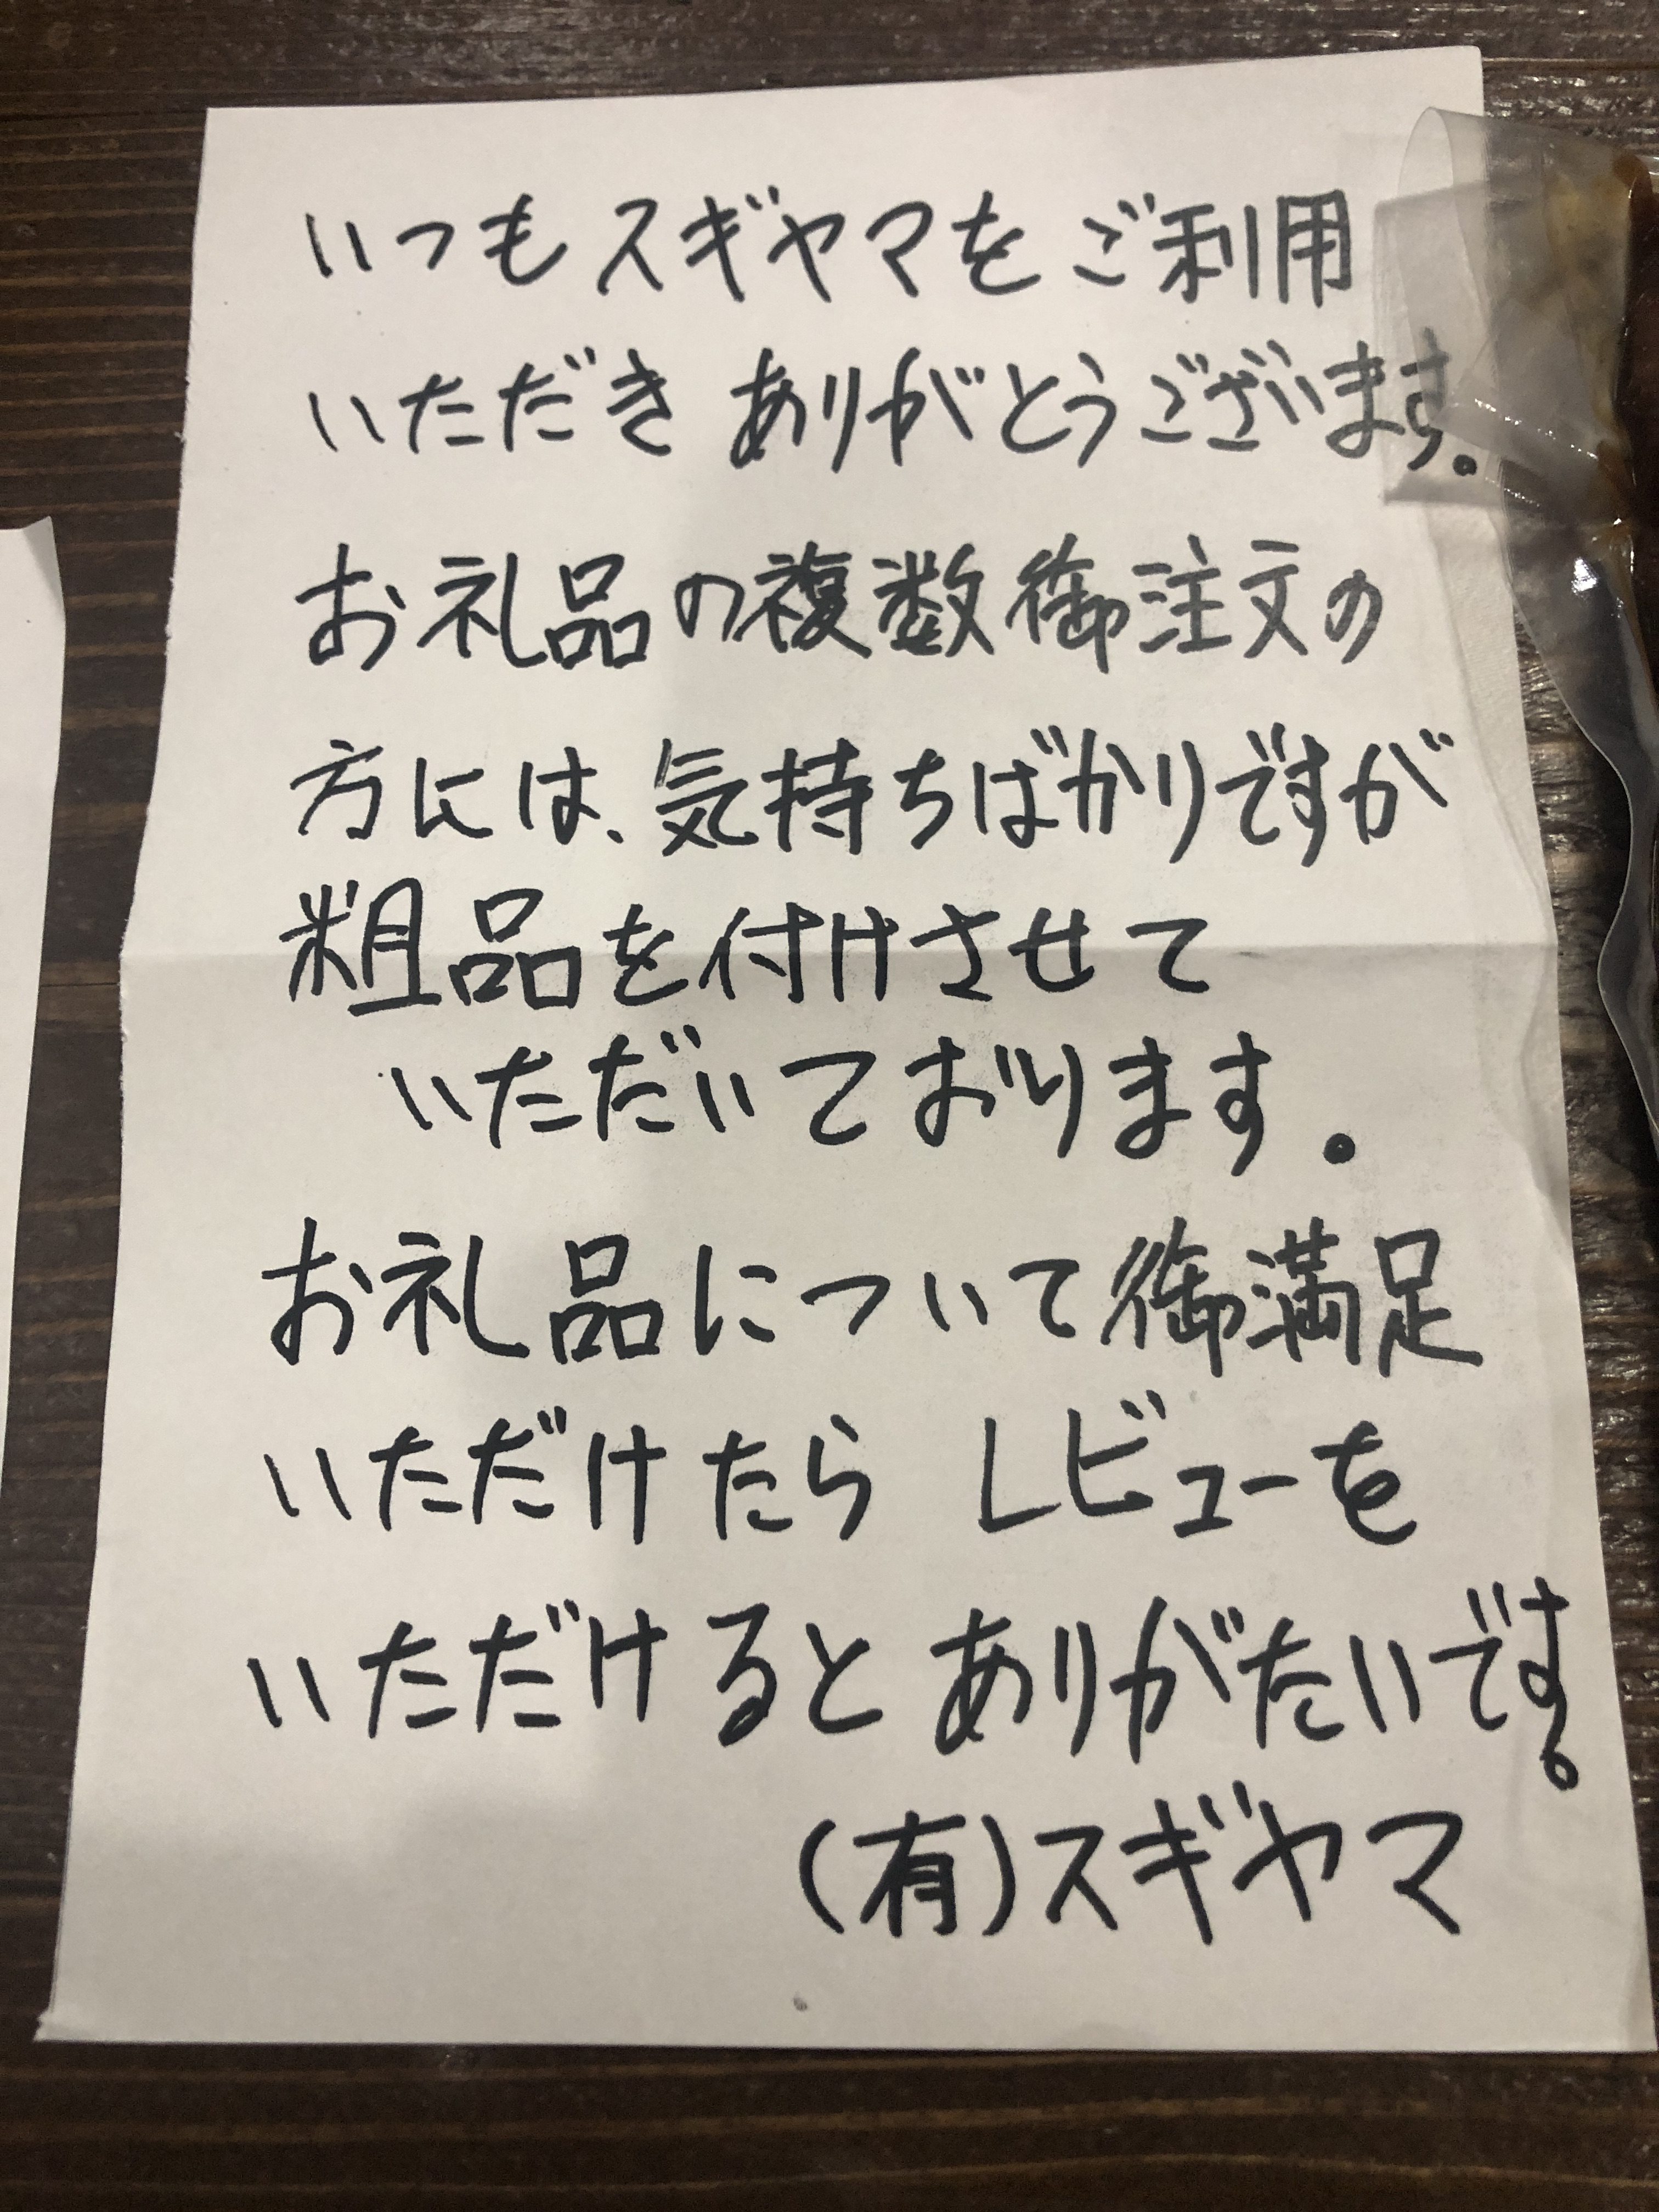 いつもスギヤマをご利用
いただき ありがとうございます。
お礼品の複数御注文の
方には、気持ちばかりですが
粗品を付けさせて
いただいております。
お礼品について御満足
いただけたら レビューを
いただけると ありがたいです。
(有)スギヤマ